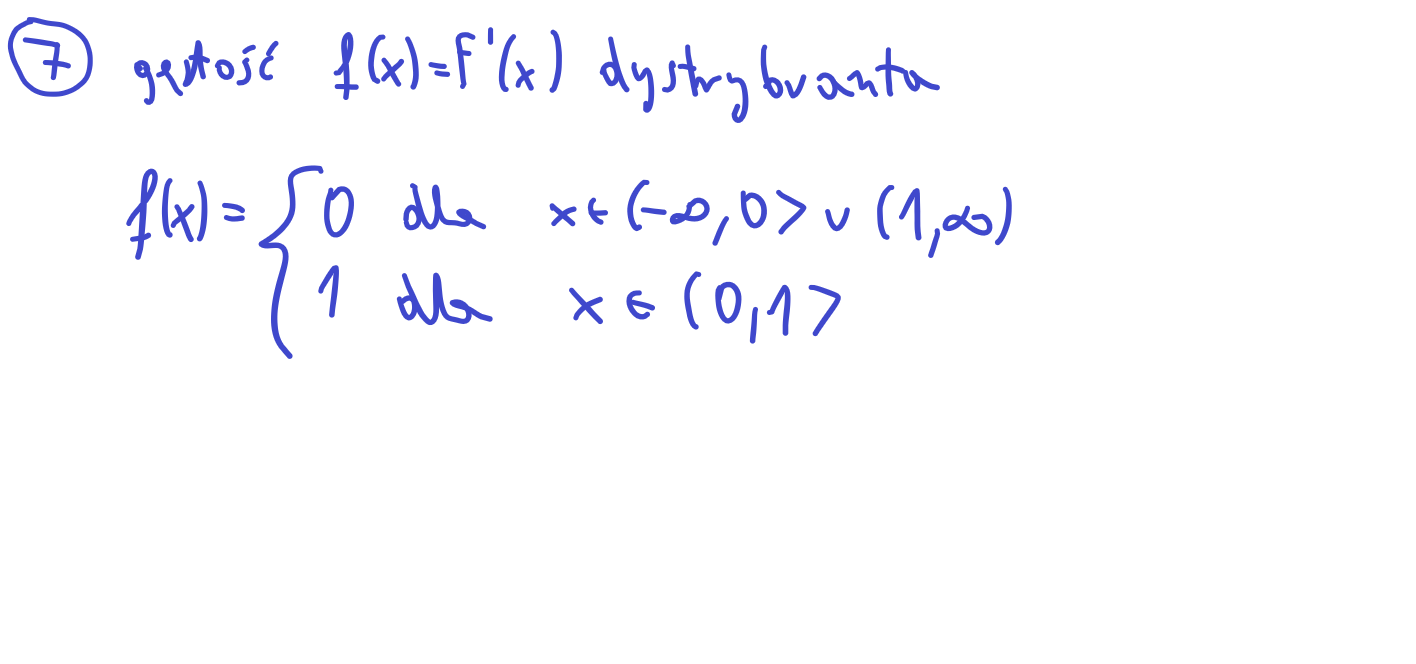 7 gęstość f(x)=F'(x) dystrybuanta
f(x)= { 0 dla x ∈ (-∞, 0> ∪ (1, ∞)
1 dla x ∈ (0, 1>